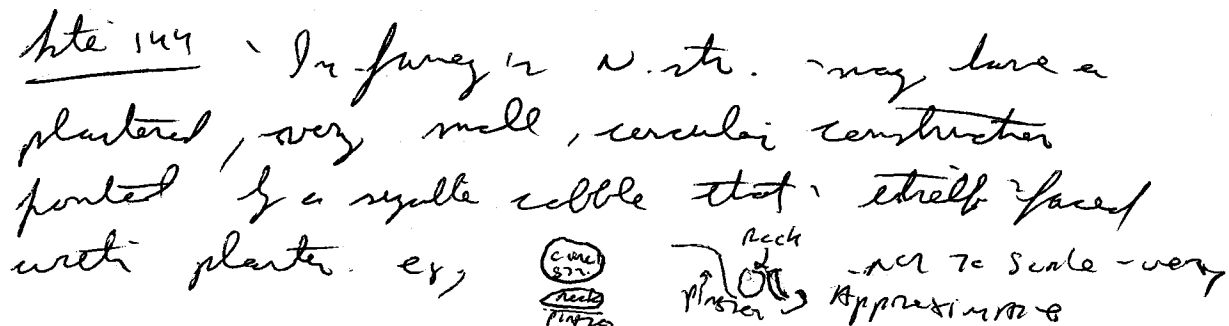 Site 144 - In facing in N. str. may have a
plastered, very small, circular construction
fronted by a sizable cobble that itself faced
with plaster. eg,
circ str. Rock plaster
Rock plaster - not to scale - very
Approximate